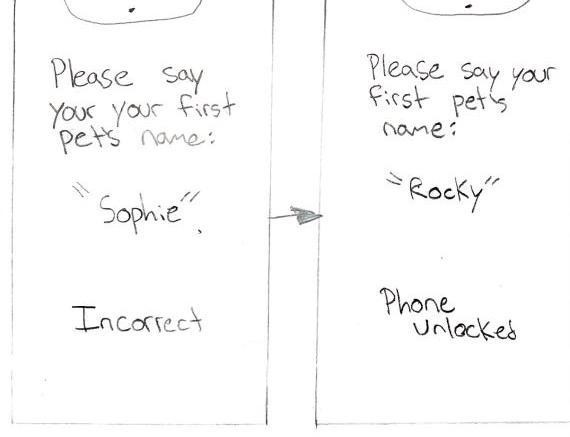 Please say
your your first
pet's name:
"Sophie".
Incorrect
Please say your
first pet's
name:
"Rocky"
Phone
unlocked